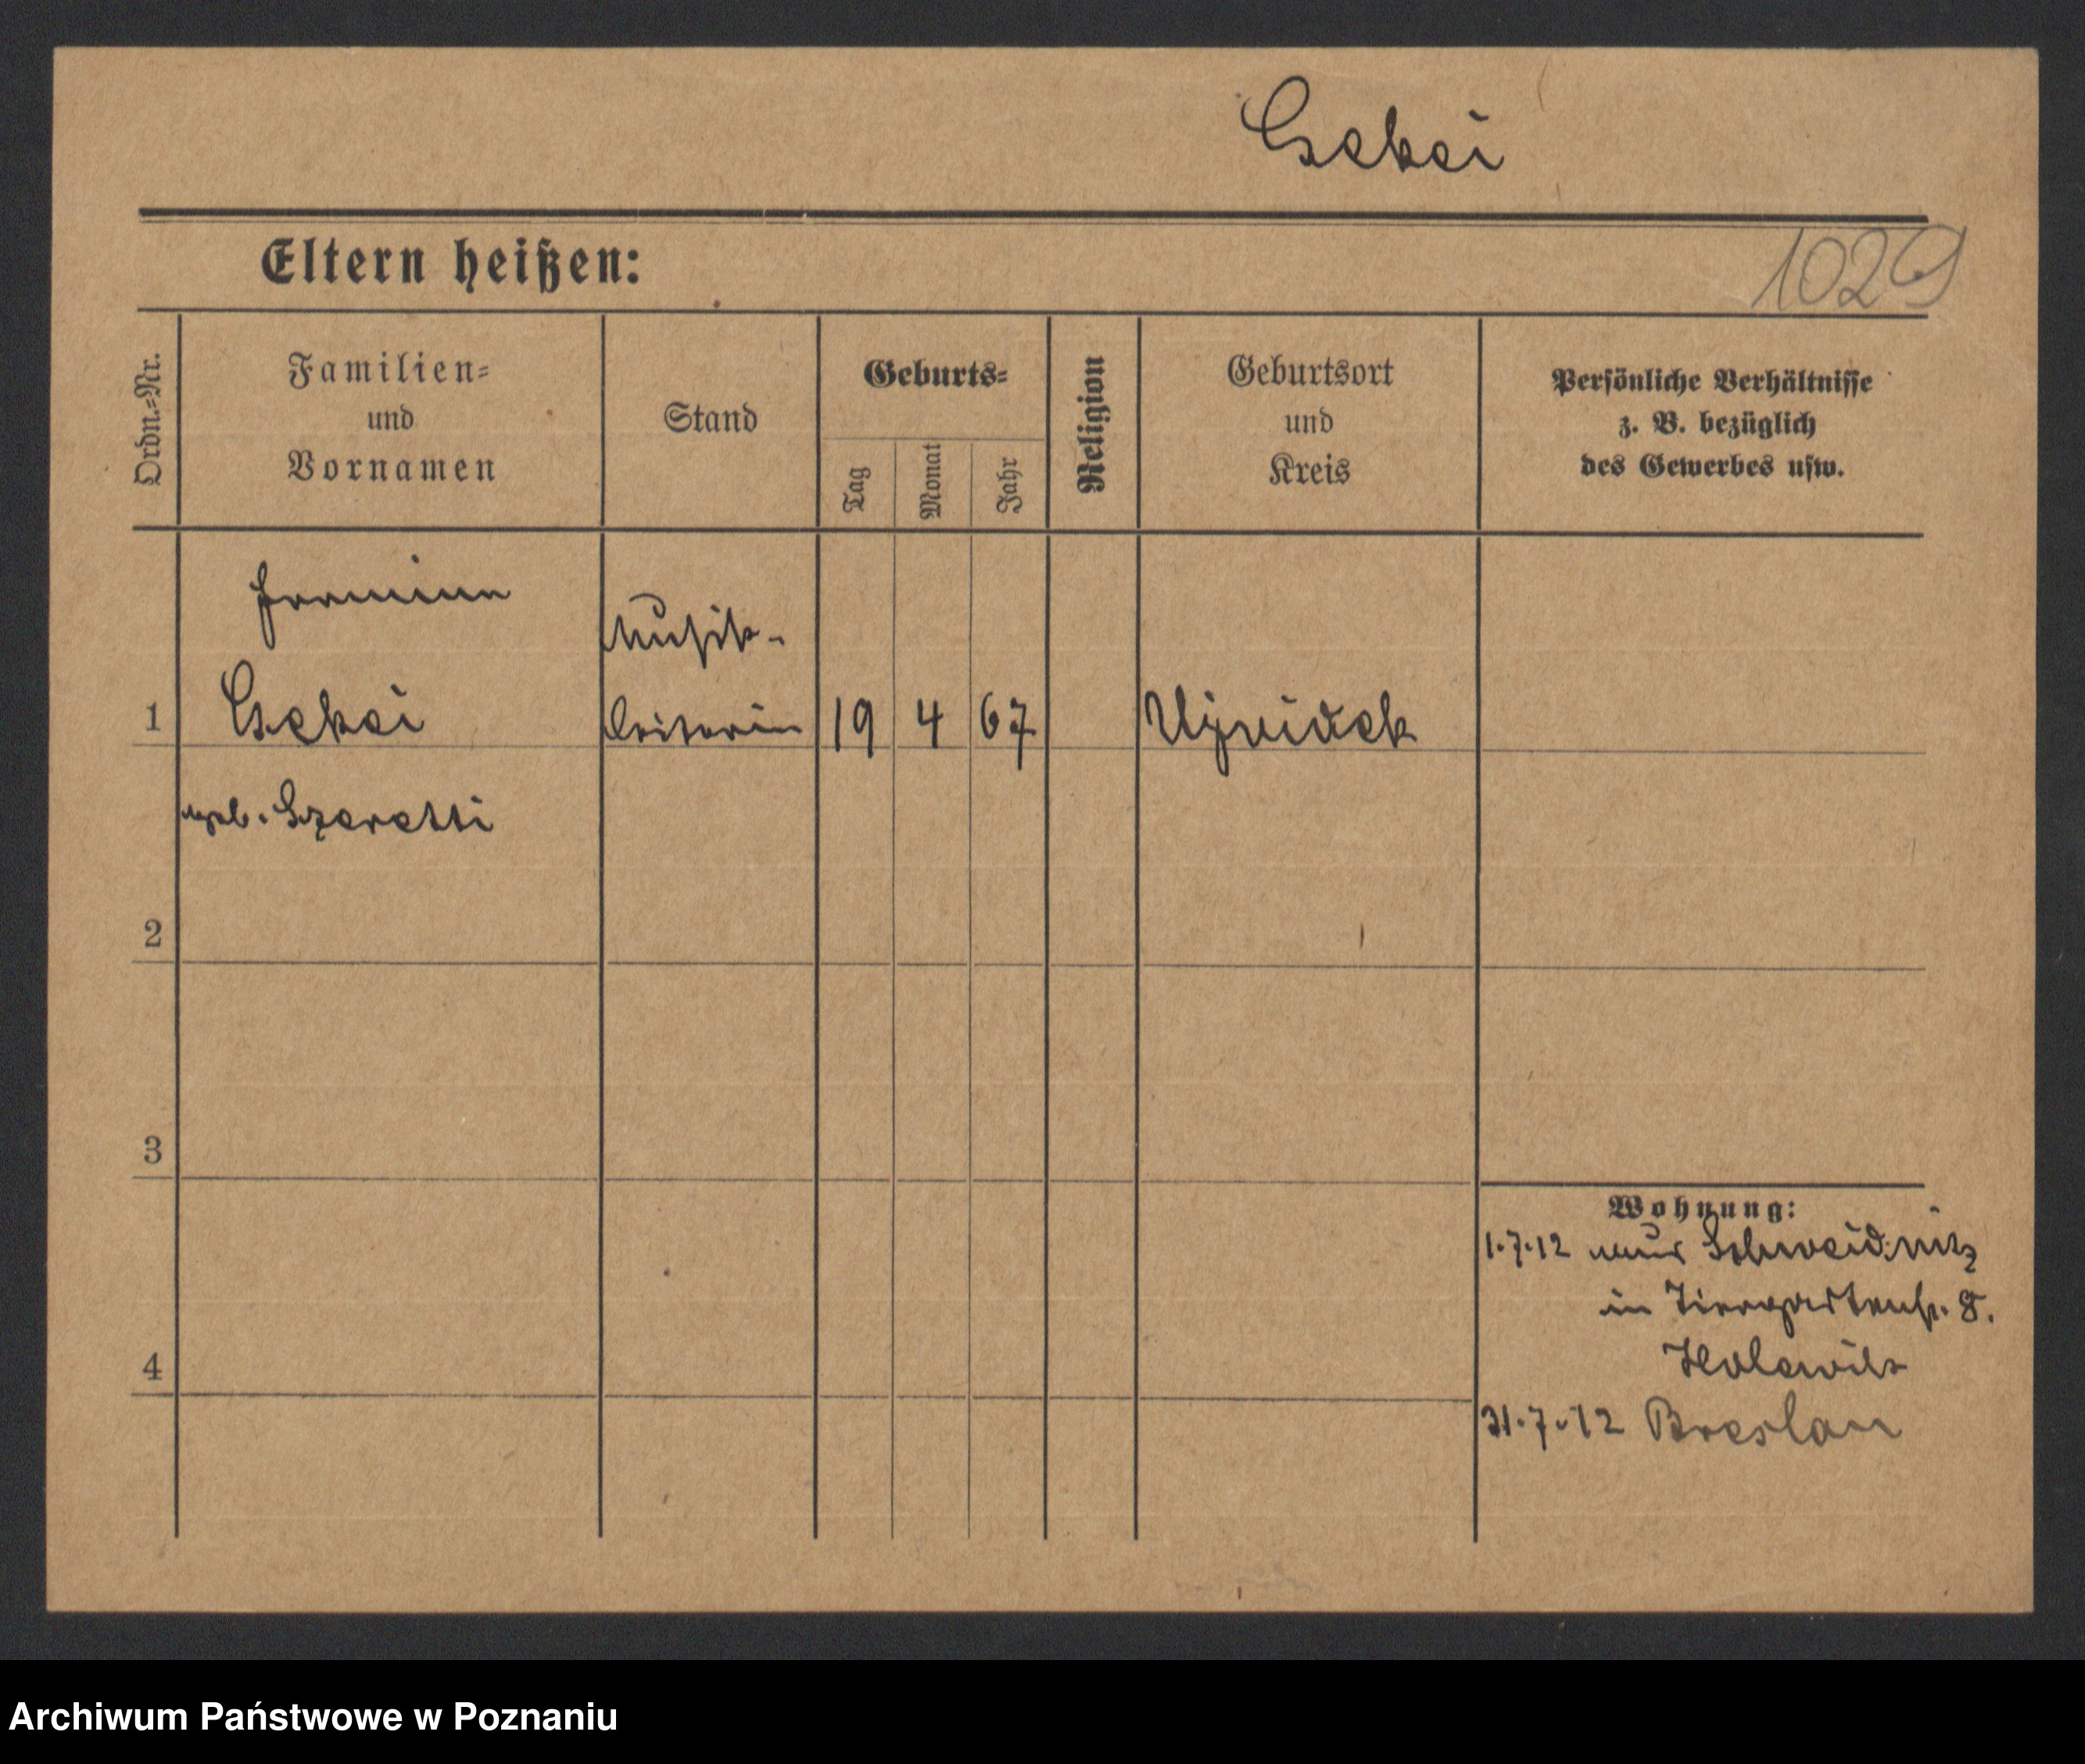 Csekei
Eltern heißen:
1029
Ordn.=Nr.
Familien=
und
Vornamen
Stand
Geburts=
Tag
Monat
Jahr
Religion
Geburtsort
und
Kreis
Persönliche Verhältnisse
z. B. bezüglich
des Gewerbes usw.
Musik-
1 Csekei leiterin 19 4 67 Ujvidek
geb. Szeretti
2
3
4
Wohnung:
1.7.12 aus Schweidnitz
in Tiergartenstr. 8.
31.7.12 Breslau
Archiwum Państwowe w Poznaniu